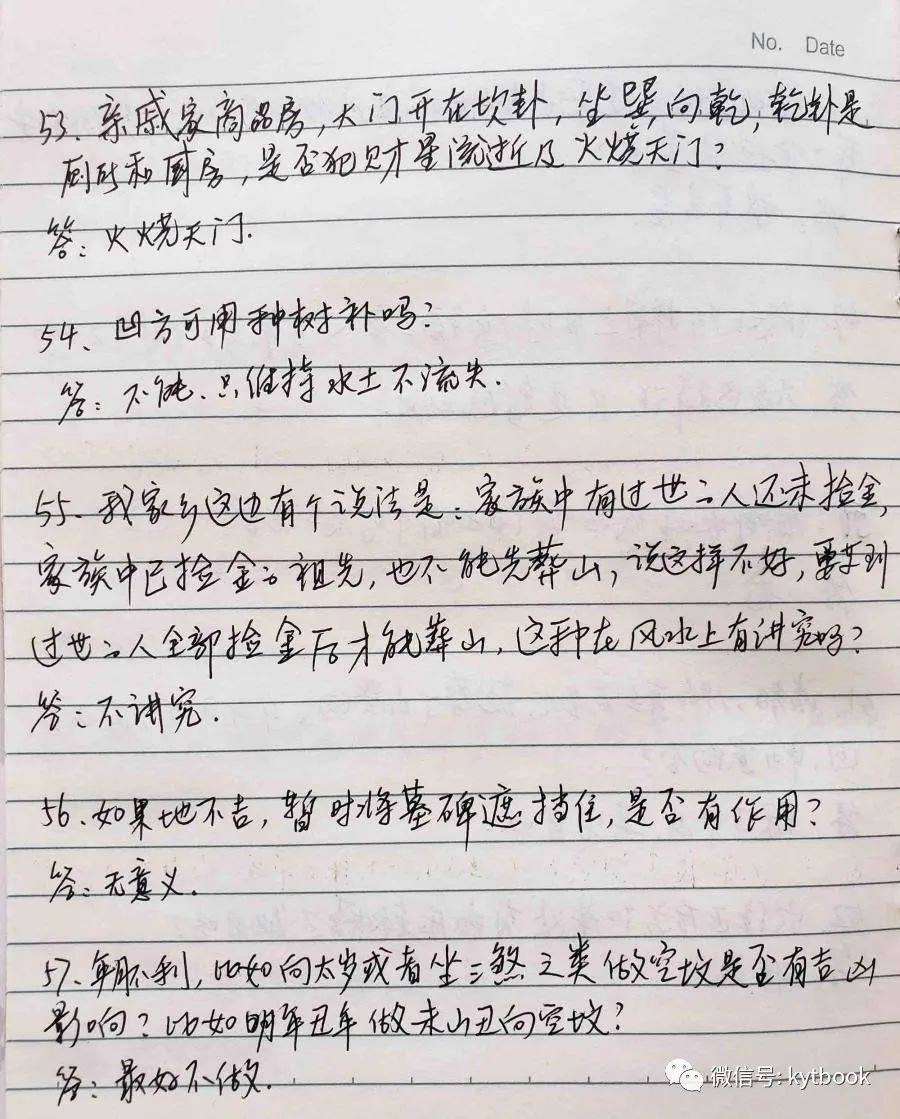 No. Date
53、亲戚家商品房,大门开在坎卦,坐巽向乾,乾卦是
厕所和厨房,是否犯财星流进及火烧天门?
答:火烧天门.
54、凹方可用种树补吗?
答:不能.只维持水土不流失.
55、我家乡这边有个说法是:家族中有过世的人还未捡金,
家族中已捡金的祖先,也不能先葬山,说这样不好,要等到
过世的人全部捡金后才能葬山,这种在风水上有讲究吗?
答:不讲究.
56、如果地不吉,暂时将墓碑遮挡住,是否有作用?
答:无意义.
57、年不利,比如向太岁或者坐三煞之类做空坟是否有吉凶
影响?比如明年丑年做未山丑向空坟?
答:最好不做.
微信号: kytbook